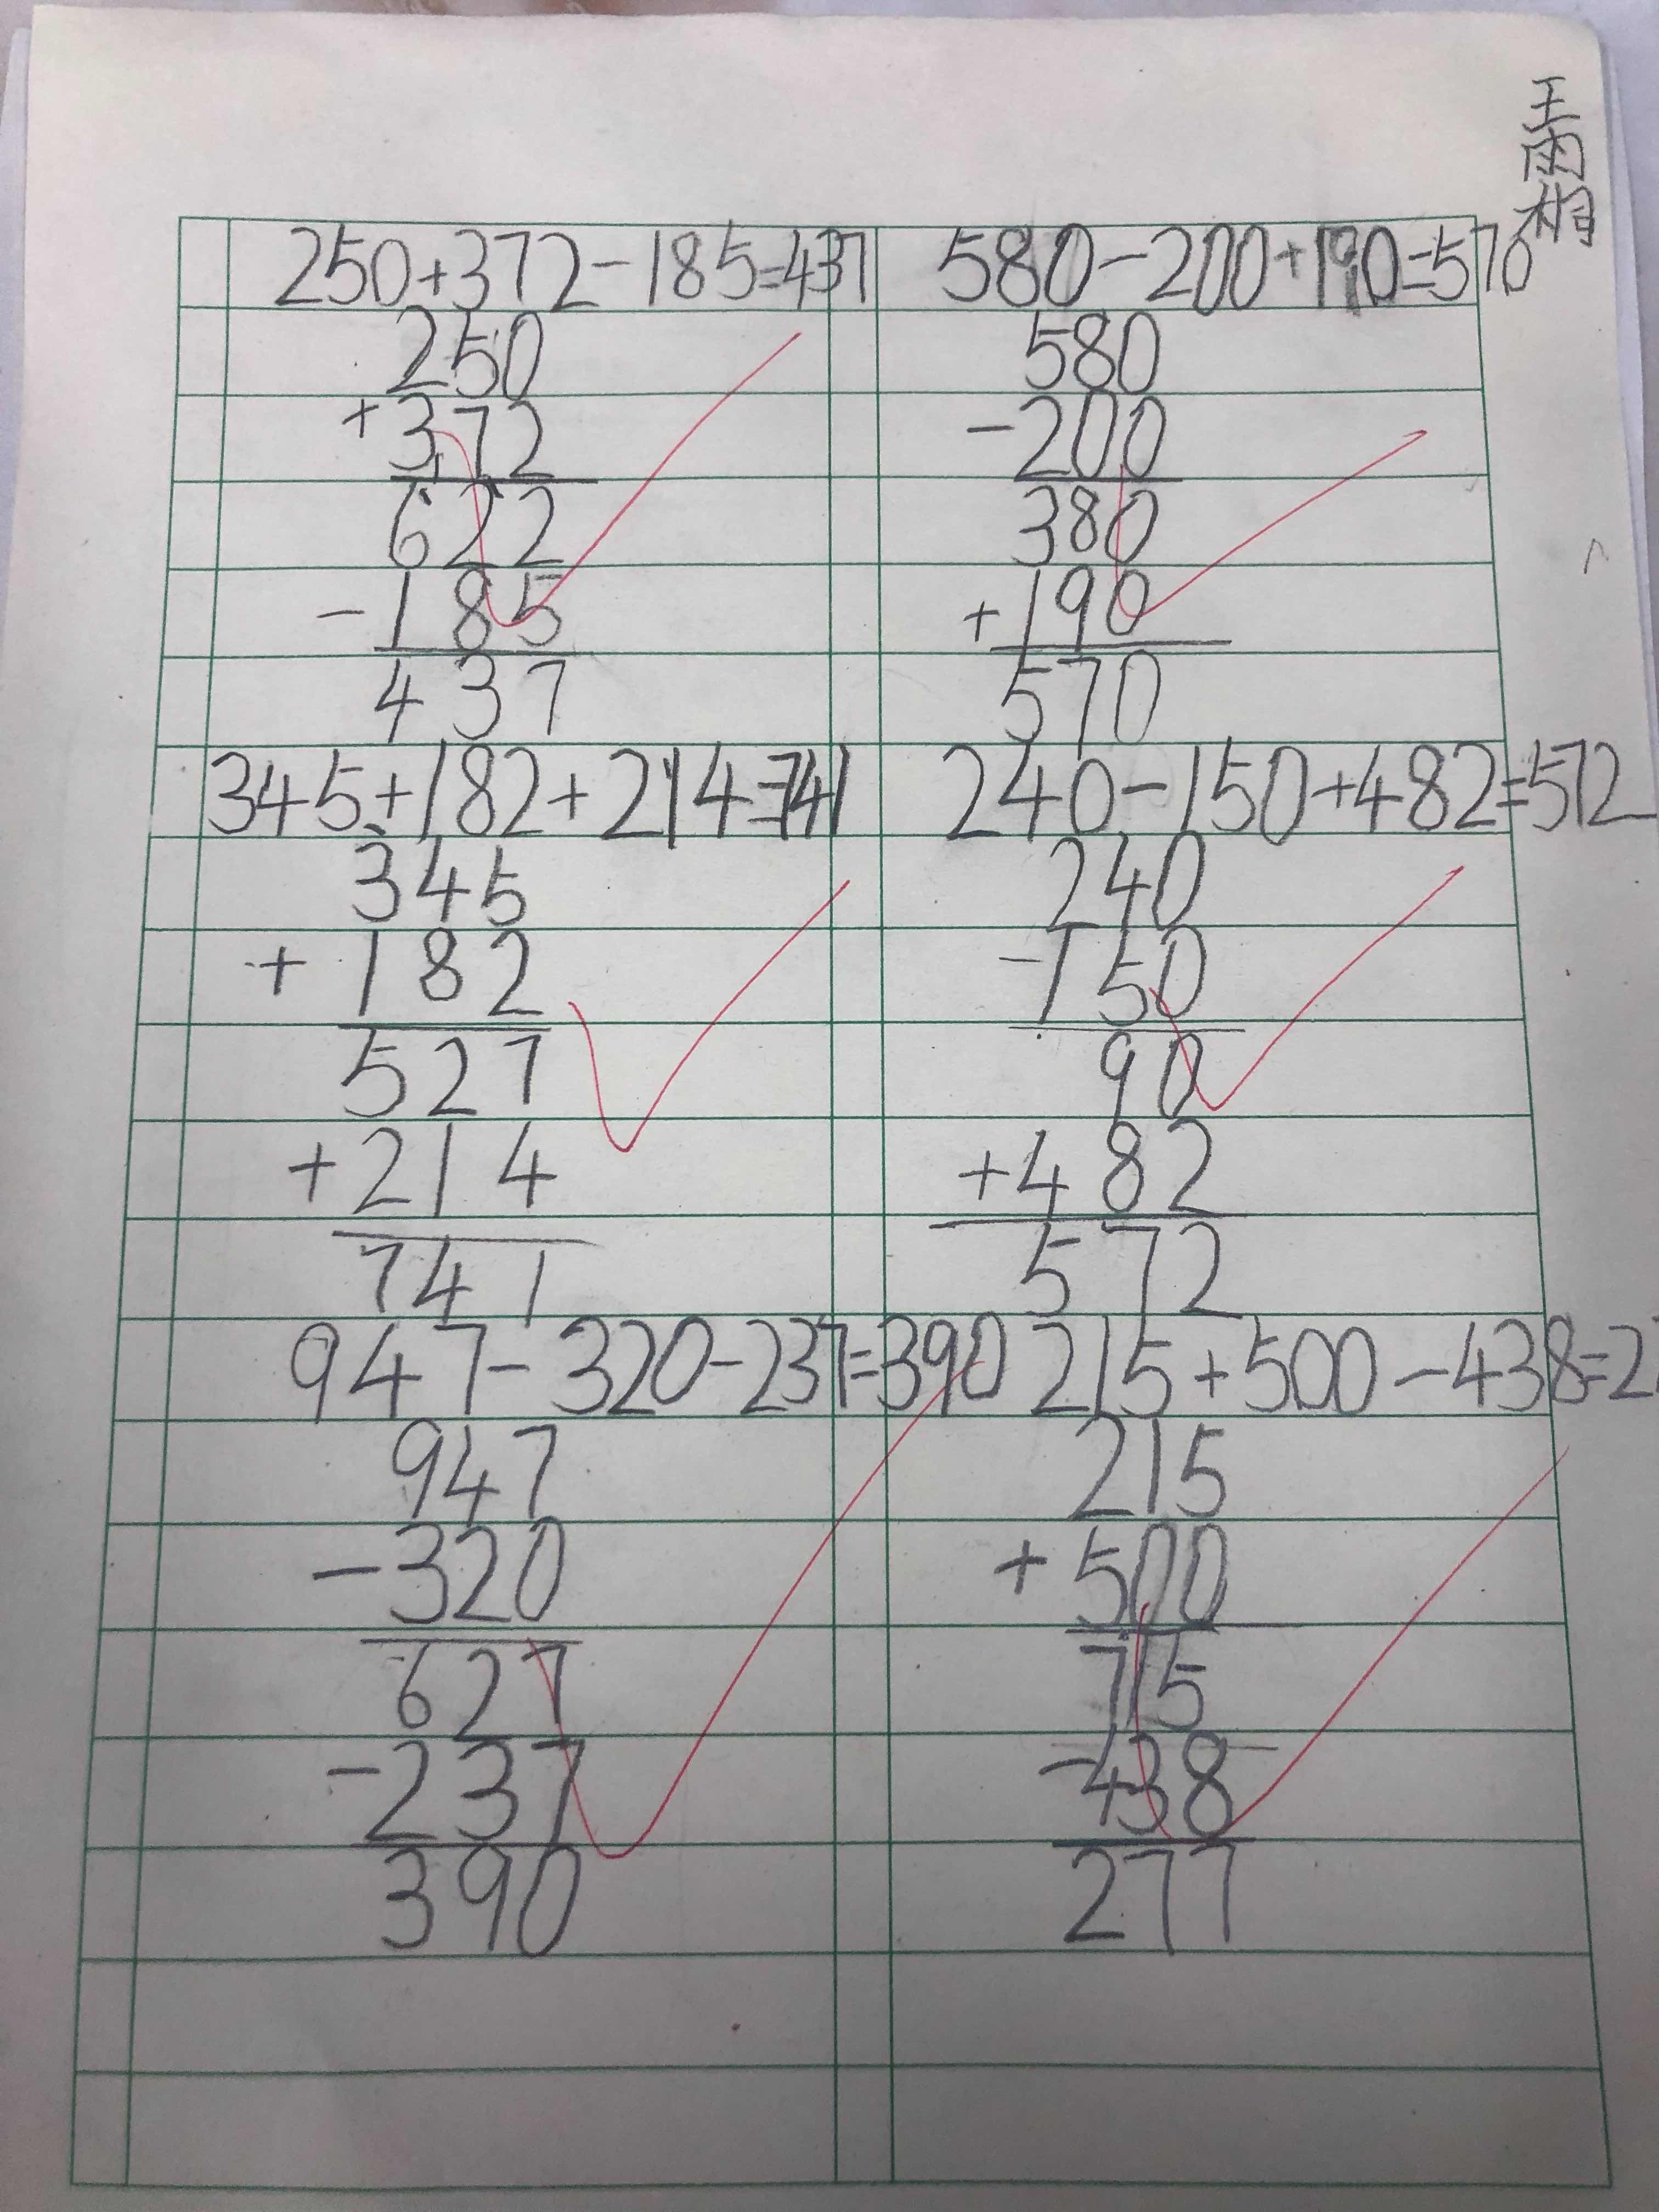 王雨桐
250+372-185=437
250
+372
622
-185
437
580-200+190=570
580
-200
380
+190
570
345+182+214=741
345
+182
527
+214
741
240-150+482=572
240
-150
90
+482
572
947-320-237=390
947
-320
627
-237
390
215+500-438=27
215
+500
715
-438
277